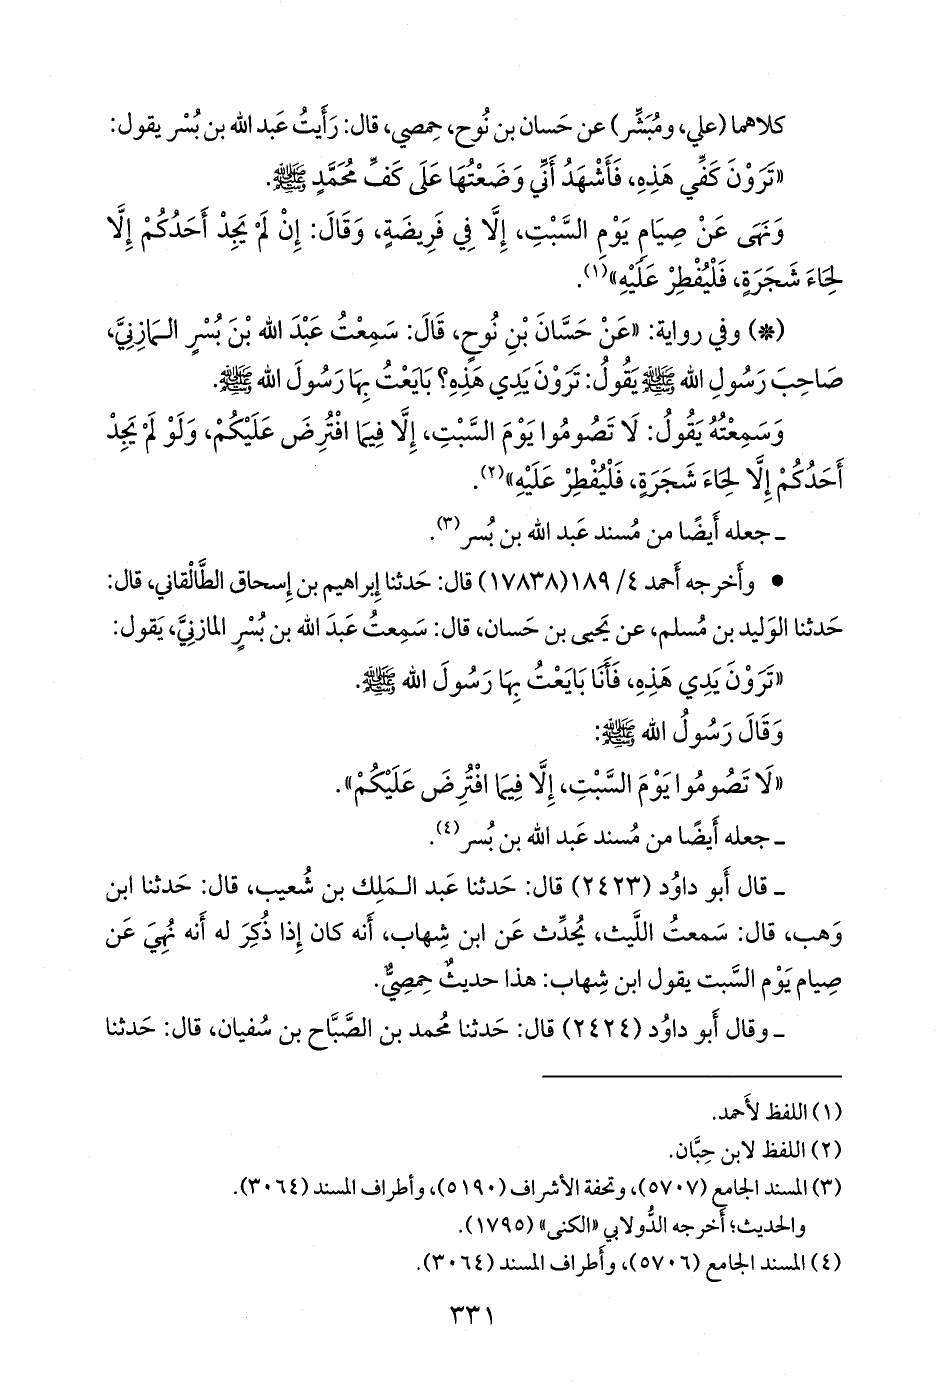 كلاهما (علي، ومُبَشِّر) عن حَسان بن نُوح، حِمصي، قال: رَأَيتُ عَبد الله بن بُسْر يقول:
«تَرَوْنَ كَفِّي هَذِهِ، فَأَشْهَدُ أَنِّي وَضَعْتُهَا عَلَى كَفِّ مُحَمَّدٍ ﷺ.
وَنَهَى عَنْ صِيَامِ يَوْمِ السَّبْتِ، إِلَّا فِي فَرِيضَةٍ، وَقَالَ: إِنْ لَمْ يَجِدْ أَحَدُكُمْ إِلَّا
لِحَاءَ شَجَرَةٍ، فَلْيُفْطِرْ عَلَيْهِ»(١).
(*) وفي رواية: «عَنْ حَسَّانَ بْنِ نُوحٍ، قَالَ: سَمِعْتُ عَبْدَ الله بْنَ بُسْرٍ الـمَازِنِيَّ،
صَاحِبَ رَسُولِ الله ﷺ يَقُولُ: تَرَوْنَ يَدِي هَذِهِ؟ بَايَعْتُ بِهَا رَسُولَ الله ﷺ.
وَسَمِعْتُهُ يَقُولُ: لَا تَصُومُوا يَوْمَ السَّبْتِ، إِلَّا فِيمَا افْتُرِضَ عَلَيْكُمْ، وَلَوْ لَمْ يَجِدْ
أَحَدُكُمْ إِلَّا لِحَاءَ شَجَرَةٍ، فَلْيُفْطِرْ عَلَيْهِ»(٢).
ـ جعله أَيضًا من مُسند عَبد الله بن بُسر(٣).
• وأَخرجه أَحمد ٤/ ١٨٩(١٧٨٣٨) قال: حَدثنا إِبراهيم بن إِسحاق الطَّالْقاني، قال:
حَدثنا الوَليد بن مُسلم، عن يَحيى بن حَسان، قال: سَمِعتُ عَبدَ الله بن بُسْرٍ المازنيَّ، يَقول:
«تَرَوْنَ يَدِي هَذِهِ، فَأَنَا بَايَعْتُ بِهَا رَسُولَ الله ﷺ.
وَقَالَ رَسُولُ الله ﷺ:
«لَا تَصُومُوا يَوْمَ السَّبْتِ، إِلَّا فِيمَا افْتُرِضَ عَلَيْكُمْ».
ـ جعله أَيضًا من مُسند عَبد الله بن بُسر(٤).
ـ قال أَبو داوُد (٢٤٢٣) قال: حَدثنا عَبد الـمَلِك بن شُعيب، قال: حَدثنا ابن
وَهب، قال: سَمعتُ اللَّيث، يُحدِّث عَن ابن شِهاب، أَنه كان إِذا ذُكِرَ له أَنه نُهِيَ عَن
صِيام يَوْم السَّبت يقول ابن شِهاب: هذا حديثٌ حِمصِيٌّ.
ـ وقال أَبو داوُد (٢٤٢٤) قال: حَدثنا مُحمد بن الصَّبَّاح بن سُفيان، قال: حَدثنا
(١) اللفظ لأَحمد.
(٢) اللفظ لابن حِبَّان.
(٣) المسند الجامع (٥٧٠٧)، وتحفة الأشراف (٥١٩٠)، وأطراف المسند (٣٠٦٤).
والحديث؛ أَخرجه الدُّولابي «الكنى» (١٧٩٥).
(٤) المسند الجامع (٥٧٠٦)، وأَطراف المسند (٣٠٦٤).
٣٣١